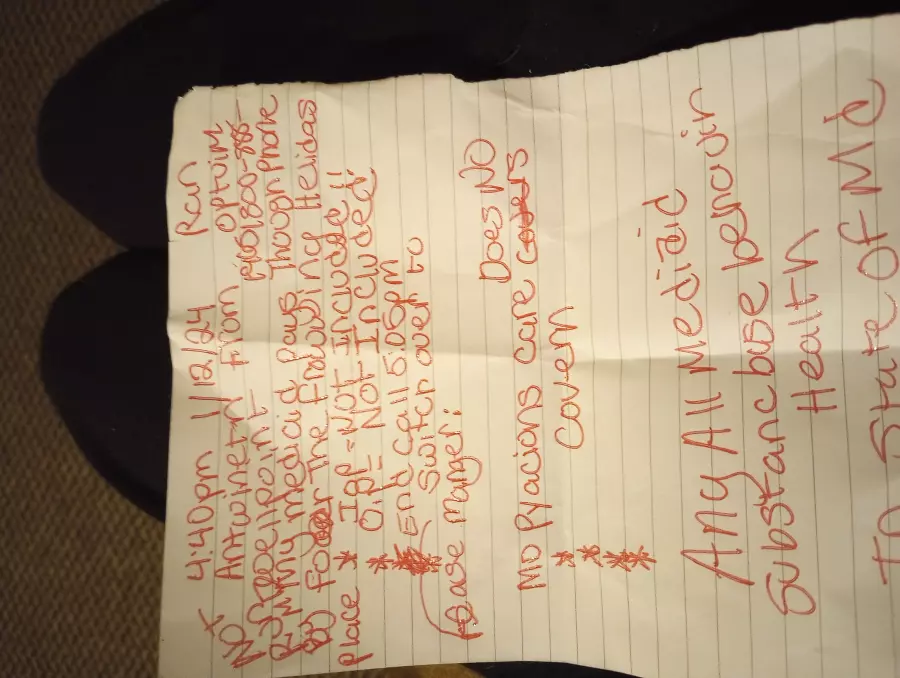 NOT 4:40pm 1/12/24 Ran
Antwinett from Optuim
Wellpoint 1800-888-
my medicid pays Though phone
by for The Providing Helidas
place * IOP - NOT Include!!
* O.P - NOT Included!
End Call 5:05pm
Switch over to
Case manger:
Does NO
MD Pyacions care covers
covern
****
Any All Medizid
Substancbuse behavin
Health
To State Of Md